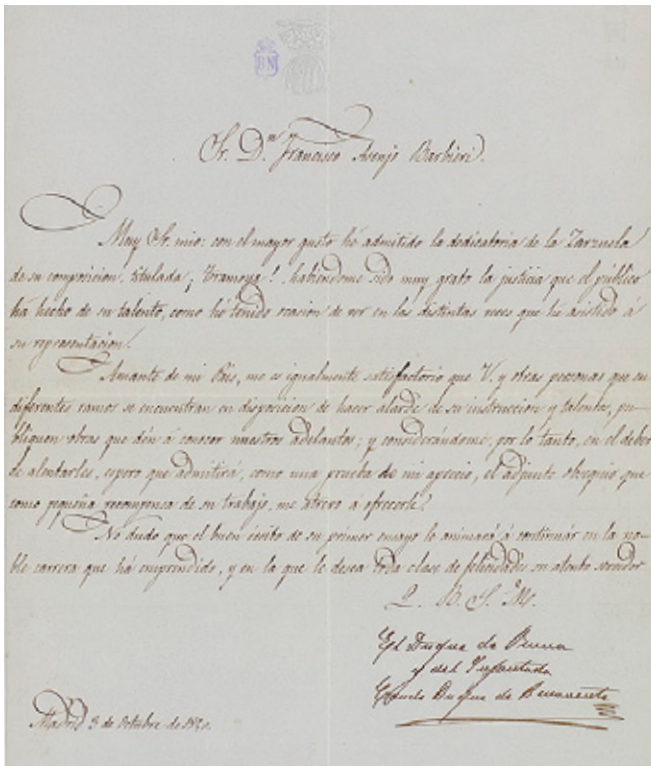 BN
Sr. D.n Francisco Asenjo Barbieri.
Muy Sr. mio: con el mayor gusto hé admitido la dedicatoria de la Zarzuela
de su composicion, titulada ¡Tramoya! habiéndome sido muy grato la justicia que el público
há hecho de su talento, como hé tenido ocasion de ver en las distintas veces que hé asistido á
su representacion.
Amante de mi Pais, me es igualmente satisfactorio que V. y otras personas que en
diferentes ramos se encuentran en disposicion de hacer alarde de su instruccion y talento, pu-
bliquen obras que dén á conocer nuestros adelantos; y considerándome, por lo tanto, en el deber
de alentarles, espero que admitirá, como una prueba de mi aprecio, el adjunto obsequio que
como pequeña recompensa de su trabajo, me atrevo á ofrecerle.
No dudo que el buen écsito de su primer ensayo le animará á continuár en la no-
ble carrera que há emprendido, y en la que le desea toda clase de felicidades su atento servidor
Q. B. S. M.
El Duque de
y del Infantado
Duque de Benavente
Madrid 3 de Octubre de